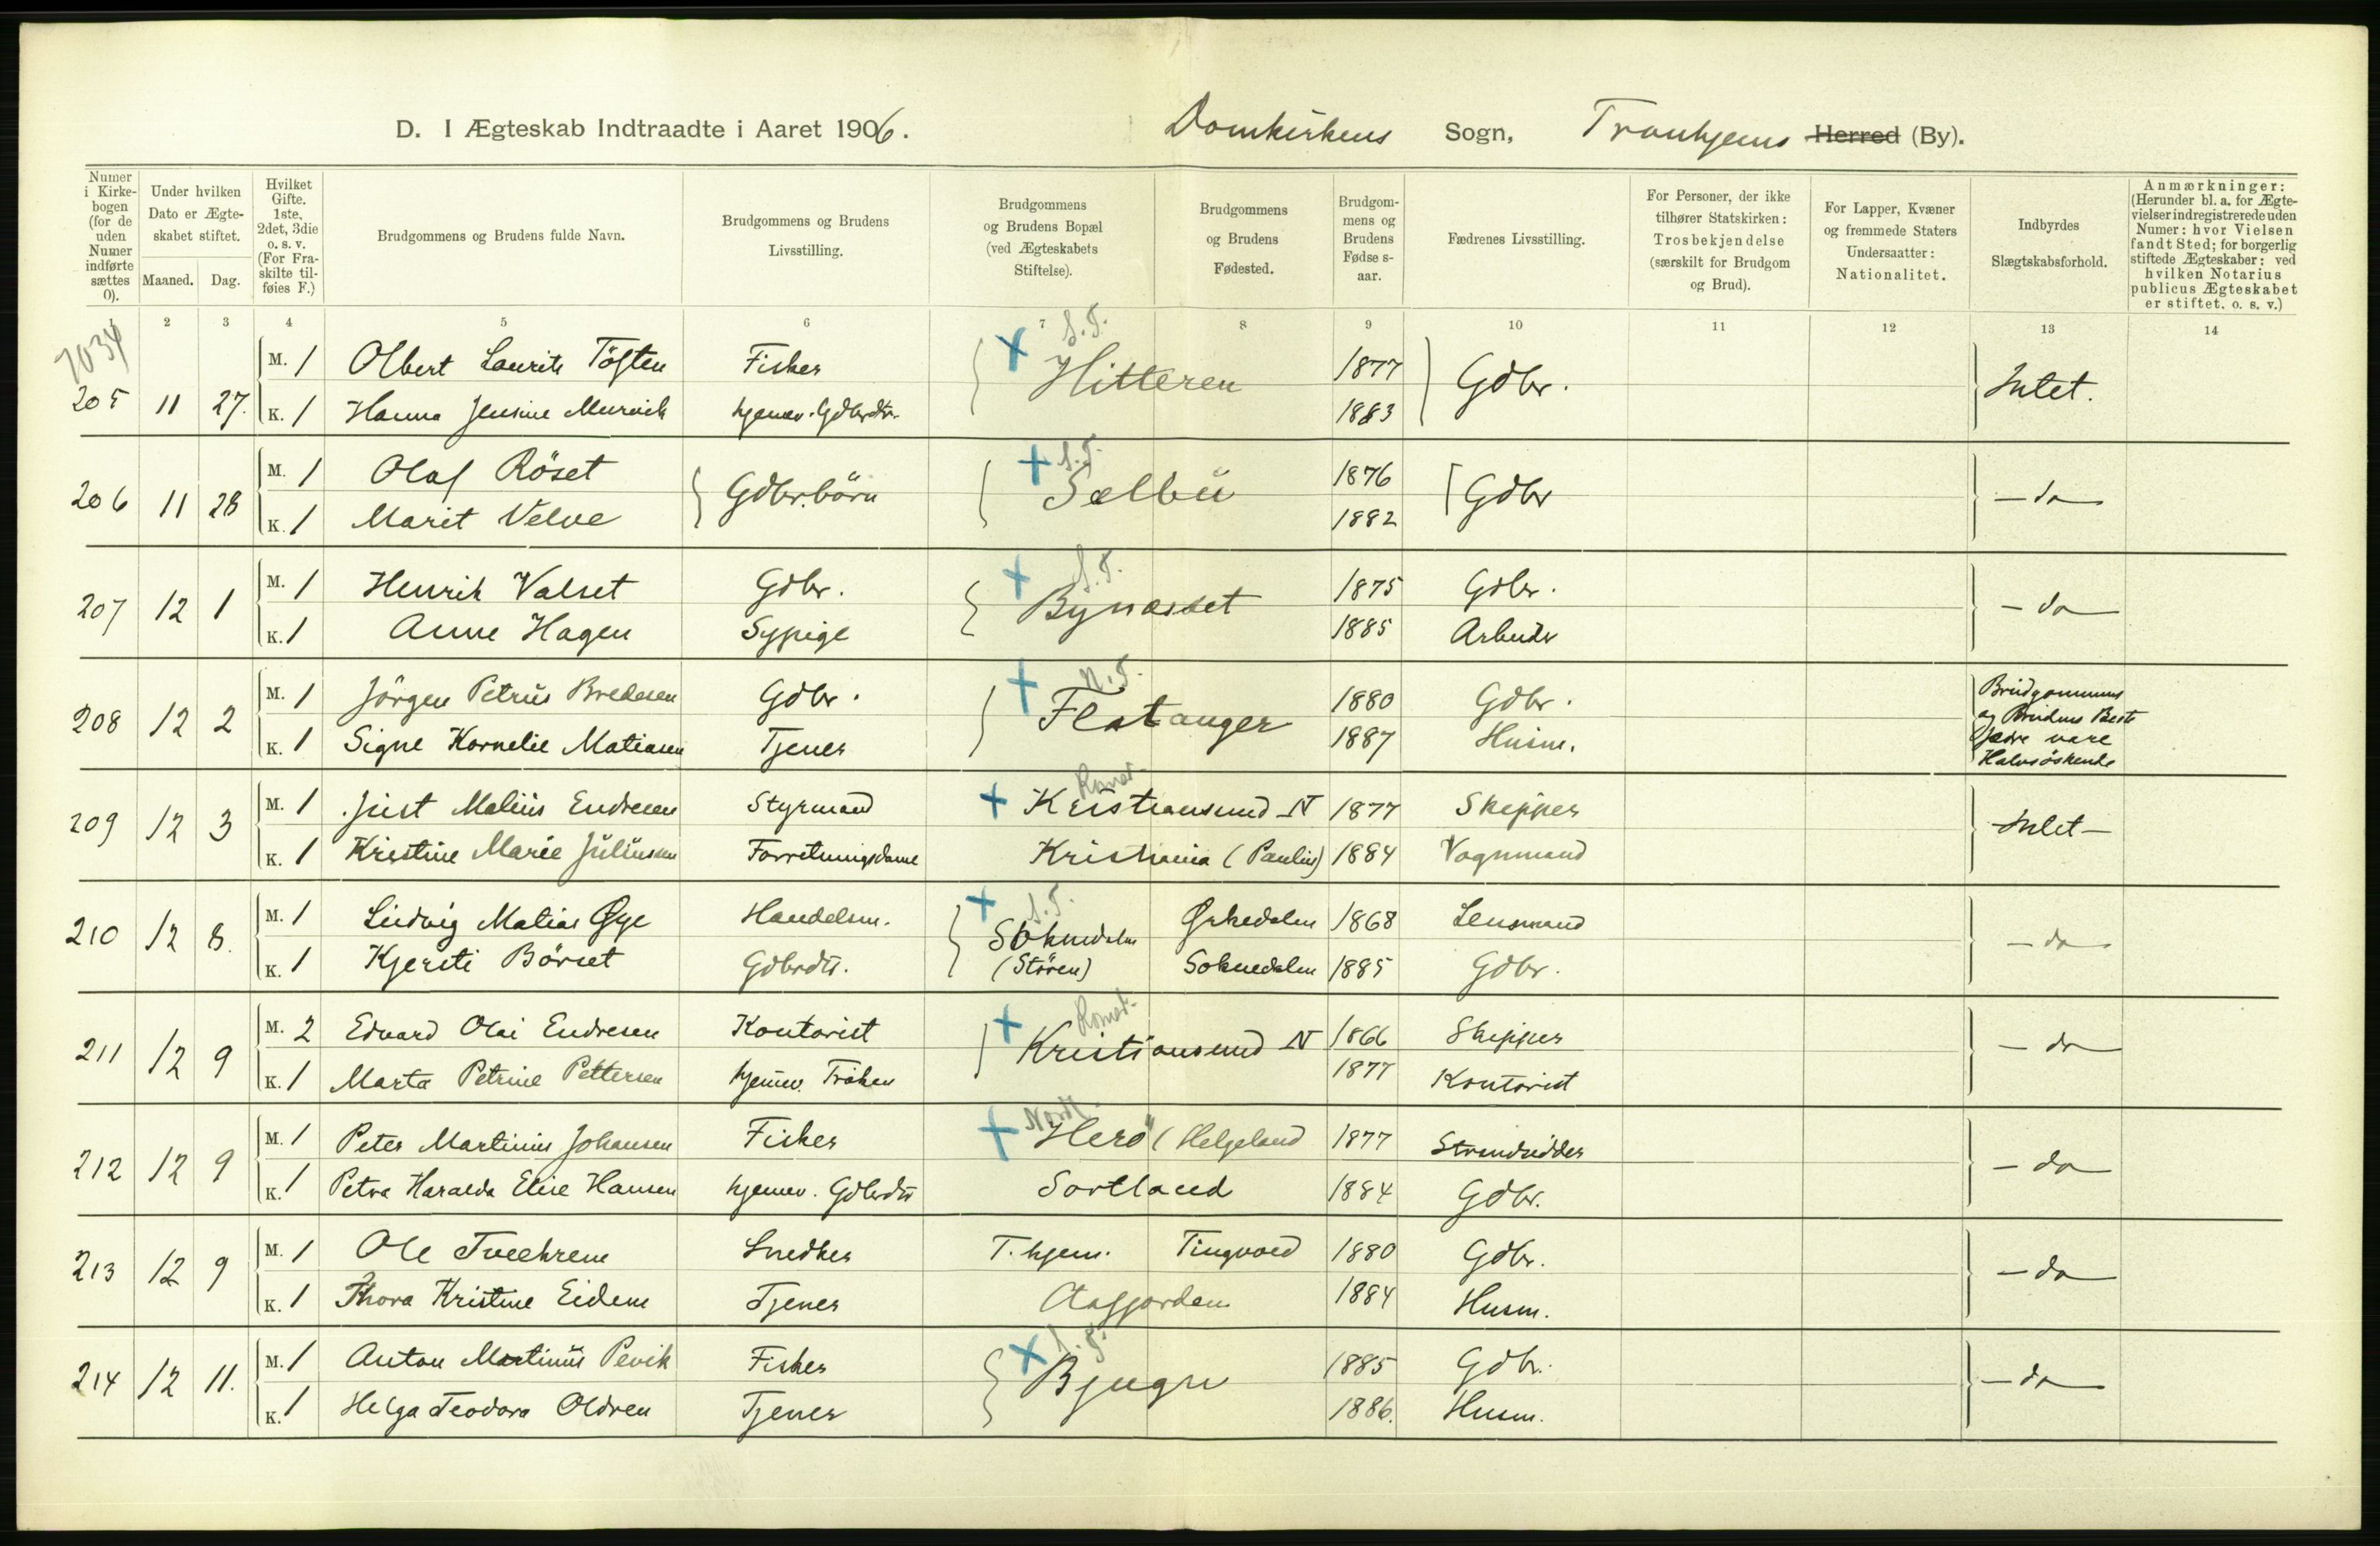 D. I Ægteskab Indtraadte i Aaret 1906. Domkirkens Sogn, Tronhjems Herred (By).
Numer i Kirkebogen (for de uden Numer indførte sættes 0).
Under hvilken Dato er Ægteskabet stiftet.
Maaned. Dag.
Hvilket Gifte. 1ste, 2det, 3die o. s. v. (For Fraskilte tilføies F.)
Brudgommens og Brudens fulde Navn.
Brudgommens og Brudens Livsstilling.
Brudgommens og Brudens Bopæl (ved Ægteskabets Stiftelse).
Brudgommens og Brudens Fødested.
Brudgommens og Brudens Fødselsaar.
Fædrenes Livsstilling.
For Personer, der ikke tilhører Statskirken: Trosbekjendelse (særskilt for Brudgom og Brud).
For Lapper, Kvæner og fremmede Staters Undersaatter: Nationalitet.
Indbyrdes Slægtskabsforhold.
Anmærkninger: (Herunder bl. a. for Ægtevielser indregistrerede uden Numer: hvor Vielsen fandt Sted; for borgerlig stiftede Ægteskaber: ved hvilken Notarius publicus Ægteskabet er stiftet, o. s. v.)
1 2 3 4 5 6 7 8 9 10 11 12 13 14
7034
S.T.
M. 1 Olbert Laurits Töften Fisker Hitteren 1877 Gdbr. Intet.
205 11 27. K. 1 Hanna Jensine hjemmev. Gdbrdtr. 1883
S.T.
M. 1 Olaf Röset Gdbr.börn Selbu 1876 Gdbr
206 11 28 — do —
K. 1 Marit Velve 1882
S.T.
M. 1 Henrik Valset Gdbr. Bynæsset 1875 Gdbr.
207 12 1 — do —
K. 1 Anne Hagen Sypige 1885 Arbeider
N.T.
M. 1 Jörgen Petrus Bredesen Gdbr. Flatanger 1880 Gdbr. Brudgommens
208 12 2 og Brudens Beste
K. 1 Signe Kornelie Matiasen Tjener 1887 Husm. fædre vare
Halvsöskende
Romsd.
M. 1 Just Malius Endresen Styrmand Kristiansund N 1877 Skipper
209 12 3 Intet —
K. 1 Kristine Marie Juliussen Forretningsdame Kristiania (Paulus) 1884 Vognmand
S.T.
M. 1 Ludvig Matias Øye Handelsm. Soknedalen Ørkedalen 1868 Lensmand
210 12 8. — do —
K. 1 Kjersti Börset Gdbrdtr. (Stören) Soknedalen 1885 Gdbr.
Romsd.
M. 2 Edvard Olai Endresen Kontorist Kristiansund N 1866 Skipper
211 12 9 — do —
K. 1 Marta Petrine Pettersen hjemmev. Fröken 1877 Kontorist
Nordl.
M. 1 Peter Martinius Johansen Fisker Herö (Helgeland 1877 Strandsidder
212 12 9 — do —
K. 1 Petra Haralda Elise Hansen hjemmev. Gdbrdtr Sortland 1884 Gdbr.
M. 1 Ole Tveekrem Snedker T.hjem. Tingvold 1880 Gdbr.
213 12 9 — do —
K. 1 Thora Kristine Eidem Tjener Aafjorden 1884 Husm.
S.T.
M. 1 Anton Martinus Pevik Fisker Bjugn 1885 Gdbr.
214 12 11. — do —
K. 1 Helga Teodora Oldren Tjener 1886. Husm.